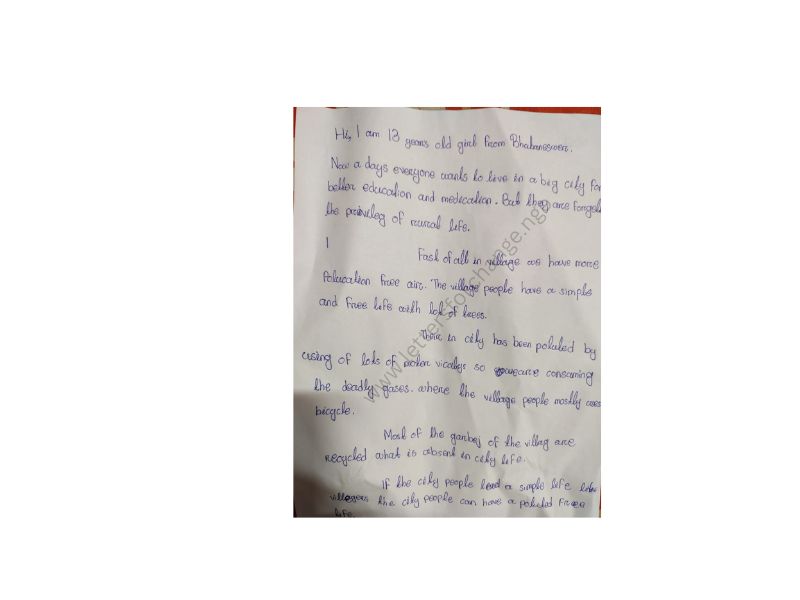 Hi, I am 13 years old girl from Bhubaneswer.
Now a days everyone wants to live in a big city for
better education and medication. But they are forget
the privileg of rural life.
I
Fast of all in village we have more
Polucation free air. The village people have a simple
and free life with lot of trees.
There in city has been poluted by
using of lots of moter vicalys so we are consuming
the deadly gases. where the village people mostly uses
bicycle.
Most of the garbej of the villag are
recycled what is absent in city life.
If the city people lead a simple life like
villegers the city people can have a poluted free
life.
www.lettersforchange.ngo